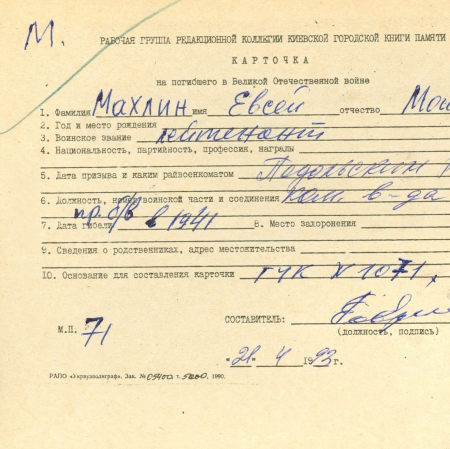 М.
РАБОЧАЯ ГРУППА РЕДАКЦИОННОЙ КОЛЛЕГИИ КИЕВСКОЙ ГОРОДСКОЙ КНИГИ ПАМЯТИ
КАРТОЧКА
на погибшего в Великой Отечественной войне
1. Фамилия Махлин имя Евсей отчество Мои
2. Год и место рождения
3. Воинское звание лейтенант
4. Национальность, партийность, профессия, награды
5. Дата призыва и каким райвоенкоматом Подольским
6. Должность, номер воинской части и соединения ком. в-да
7. Дата гибели пр. б/в в 1941 8. Место захоронения
9. Сведения о родственниках, адрес местожительства
10. Основание для составления карточки ГУК № 1071,
СОСТАВИТЕЛЬ:
(должность, подпись)
М.П. 71
"21" 4 1993г.
РАПО «Укрвузполиграф». Зак. № 09400 т. 5000. 1990.